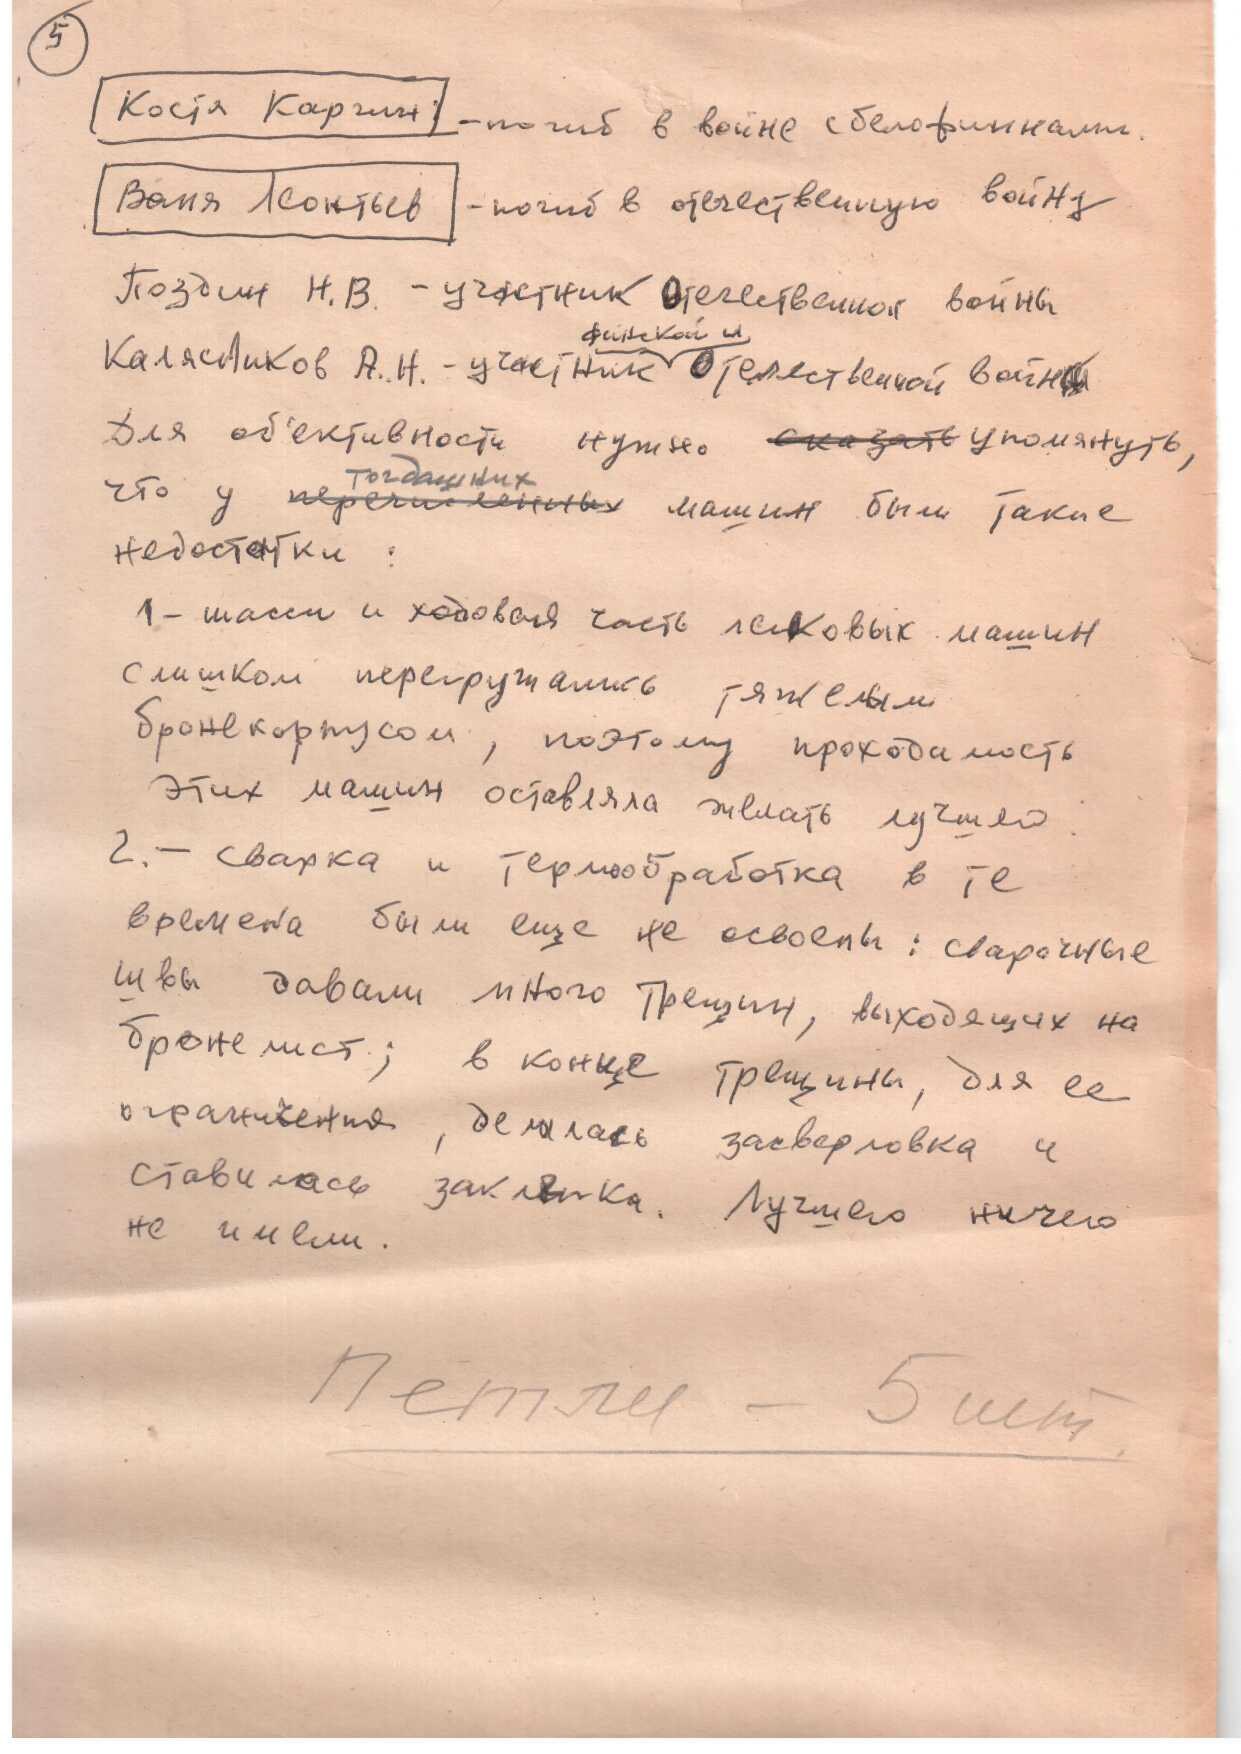 5
Костя Каргин: - погиб в войне с белофиннами.
Ваня Леонтьев - погиб в отечественную войну
Поздин Н.В. - участник Отечественной войны
финской и
Калясников А.Н. - участник Отечественной войны
Для об'ективности нужно сказать упомянуть,
тогдашних
что у перечисленных машин были такие
недостатки :
1 - шасси и ходовая часть легковых машин
слишком перегружались тяжелым
бронекорпусом, поэтому проходимость
этих машин оставляла желать лучшего.
2. - сварка и термообработка в те
времена были еще не освоены : сварочные
швы давали много трещин, выходящих на
бронелист ; в конце трещины, для ее
ограничения, делалась засверловка и
ставилась заклепка. Лучшего ничего
не имели.
Петли - 5 шт.